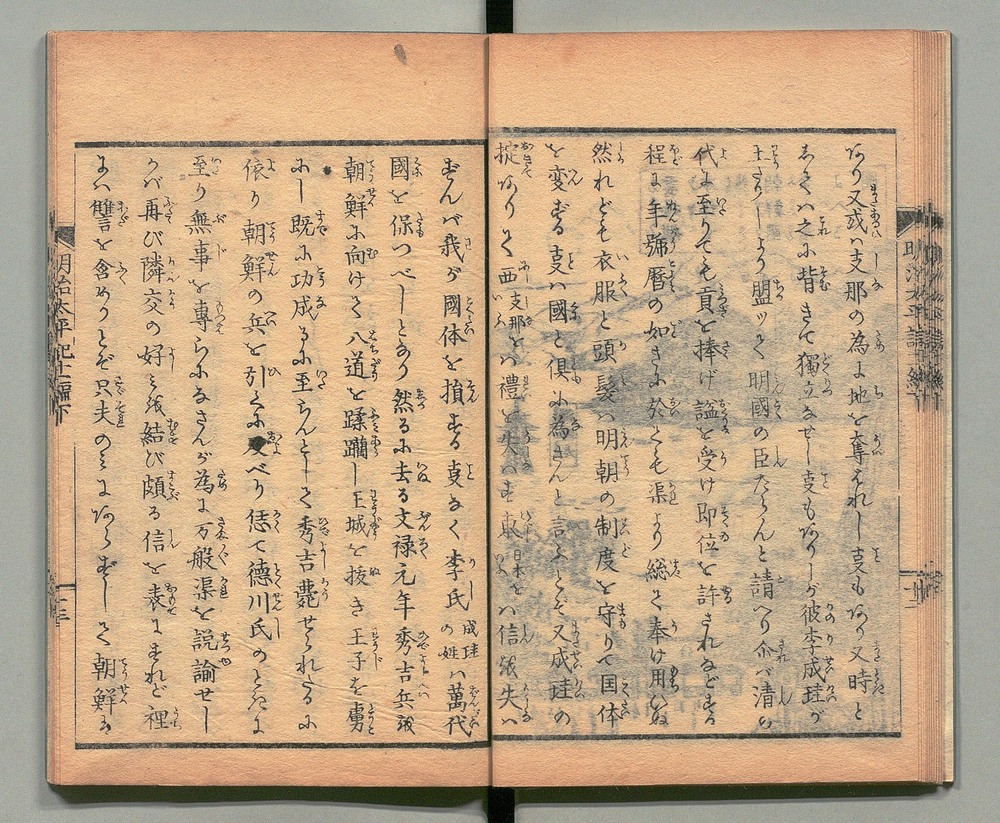 あり又或ハ支那の為に地を奪はれし事もあり又時と
しくハ之に背きて獨立なせし事もありしが彼李成珪が
王たりしより盟ッて明國の臣たらんと請へり尓バ清の
代に至りても貢を捧げ謚を受け即位を許されなどする
程に年號暦の如きに於ても渠より総て奉け用ひぬ
然れども衣服と頭髮ハ明朝の制度を守りて国体
を変ずる事ハ國と倶に為さんと言ふとぞ又成珪の
掟ありて西支那をハ禮を失ハず東日本をハ信を失ハ
ずんバ我が國体を損する事なく李氏成珪の姓ハ萬代
國を保つべしとあり然るに去る文禄元年秀吉兵を
朝鮮に向けて八道を蹂躙し王城を抜き王子を虜
にし既に功成るに至らんとして秀吉薨せられたるに
依り朝鮮の兵を引くに及べり恁て德川氏のときに
至り無事を專らになさんが為に万般渠を説諭せし
かバ再び隣交の好ミを結び頗る信を表にすれど裡
にハ讐を含めりとぞ只夫のミにあらずして朝鮮に
明治太平記十二編下